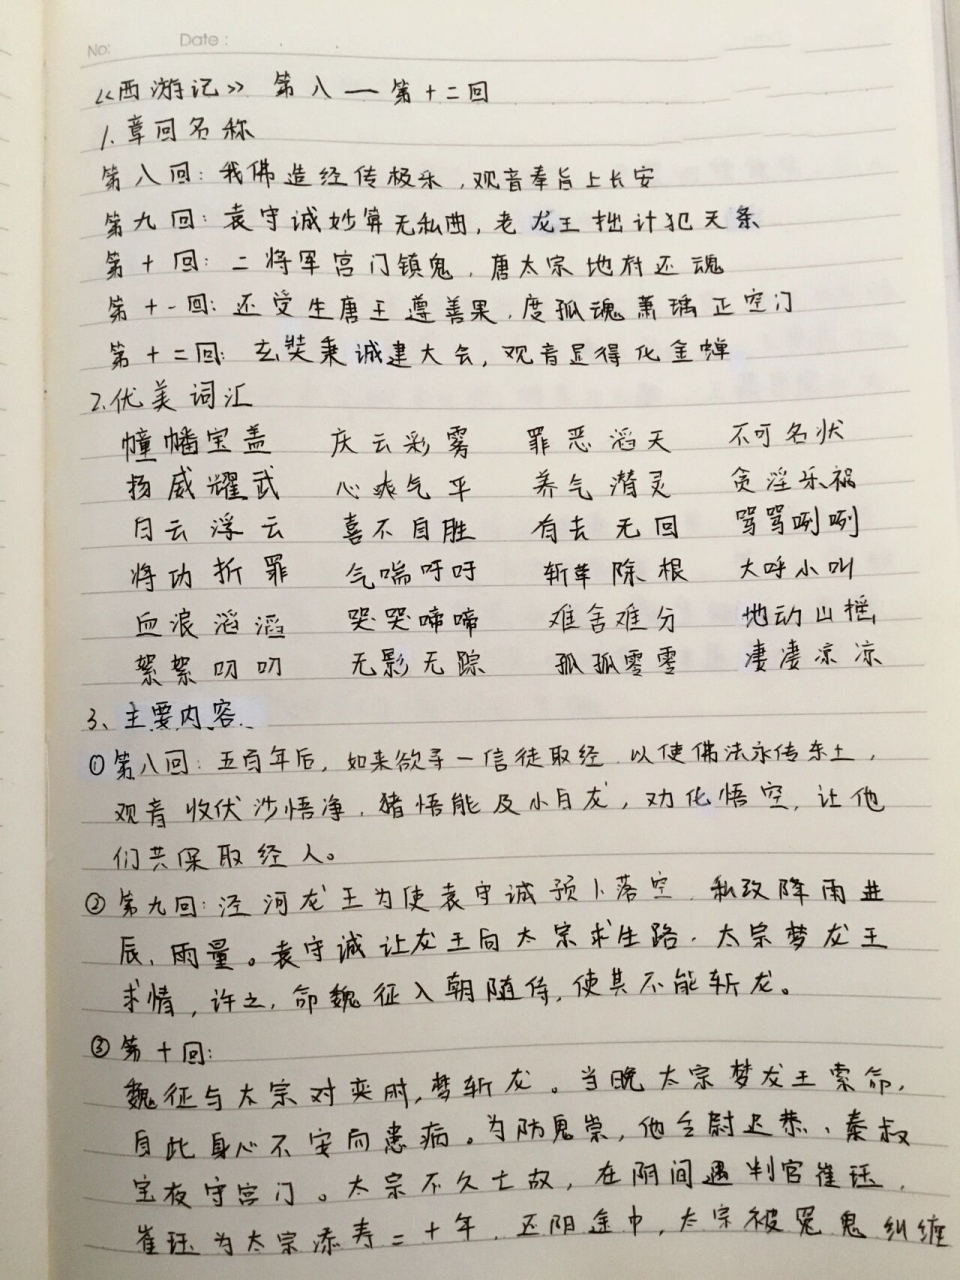 No:
Date:
《西游记》 第八一第十二回
1.章回名称
第八回:我佛造经传极乐,观音奉旨上长安
第九回:袁守诚妙算无私曲,老龙王拙计犯天条
第十回:二将军宫门镇鬼,唐太宗地府还魂
第十一回:还受生唐王遵善果,度孤魂萧瑀正空门
第十二回:玄奘秉诚建大会,观音显得化金蝉
2.优美词汇
幢幡宝盖 庆云彩雾 罪恶滔天 不可名状
扬威耀武 心爽气平 养气潜灵 贪淫乐祸
白云浮云 喜不自胜 有去无回 骂骂咧咧
将功折罪 气喘吁吁 斩草除根 大呼小叫
血浪滔滔 哭哭啼啼 难舍难分 地动山摇
絮絮叨叨 无影无踪 孤孤零零 凄凄凉凉
3、主要内容
①第八回:五百年后,如来欲寻一信徒取经,以使佛法永传东土,
观音收伏沙悟净,猪悟能及小白龙,劝化悟空,让他
们共保取经人。
②第九回:泾河龙王为使袁守诚预卜落空,私改降雨进
辰、雨量。袁守诚让龙王向太宗求生路,太宗梦龙王
求情,许之,命魏征入朝随侍,使其不能斩龙。
③第十回:
魏征与太宗对奕时,梦斩龙。当晚太宗梦龙王索命,
自此身心不安而患病。为防鬼祟,他令尉迟恭、秦叔
宝夜守宫门。太宗不久亡故,在阴间遇判官崔珏,
崔珏为太宗添寿二十年,还阳途中,太宗被冤鬼纠缠